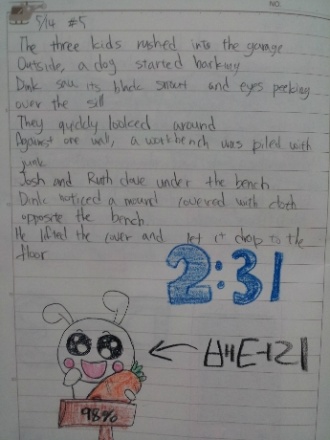 NO.
5/14 #5
The three kids rushed into the garage
Outside, a dog started barking
Dink saw its black snout and eyes peeking
over the sill
They quickly looked around
Against one wall, a workbench was piled with
junk.
Josh and Ruth dove under the bench
Dink noticed a mound covered with cloth
opposite the bench.
He lifted the cover and let it drop to the
floor
2:31
배터리
98%